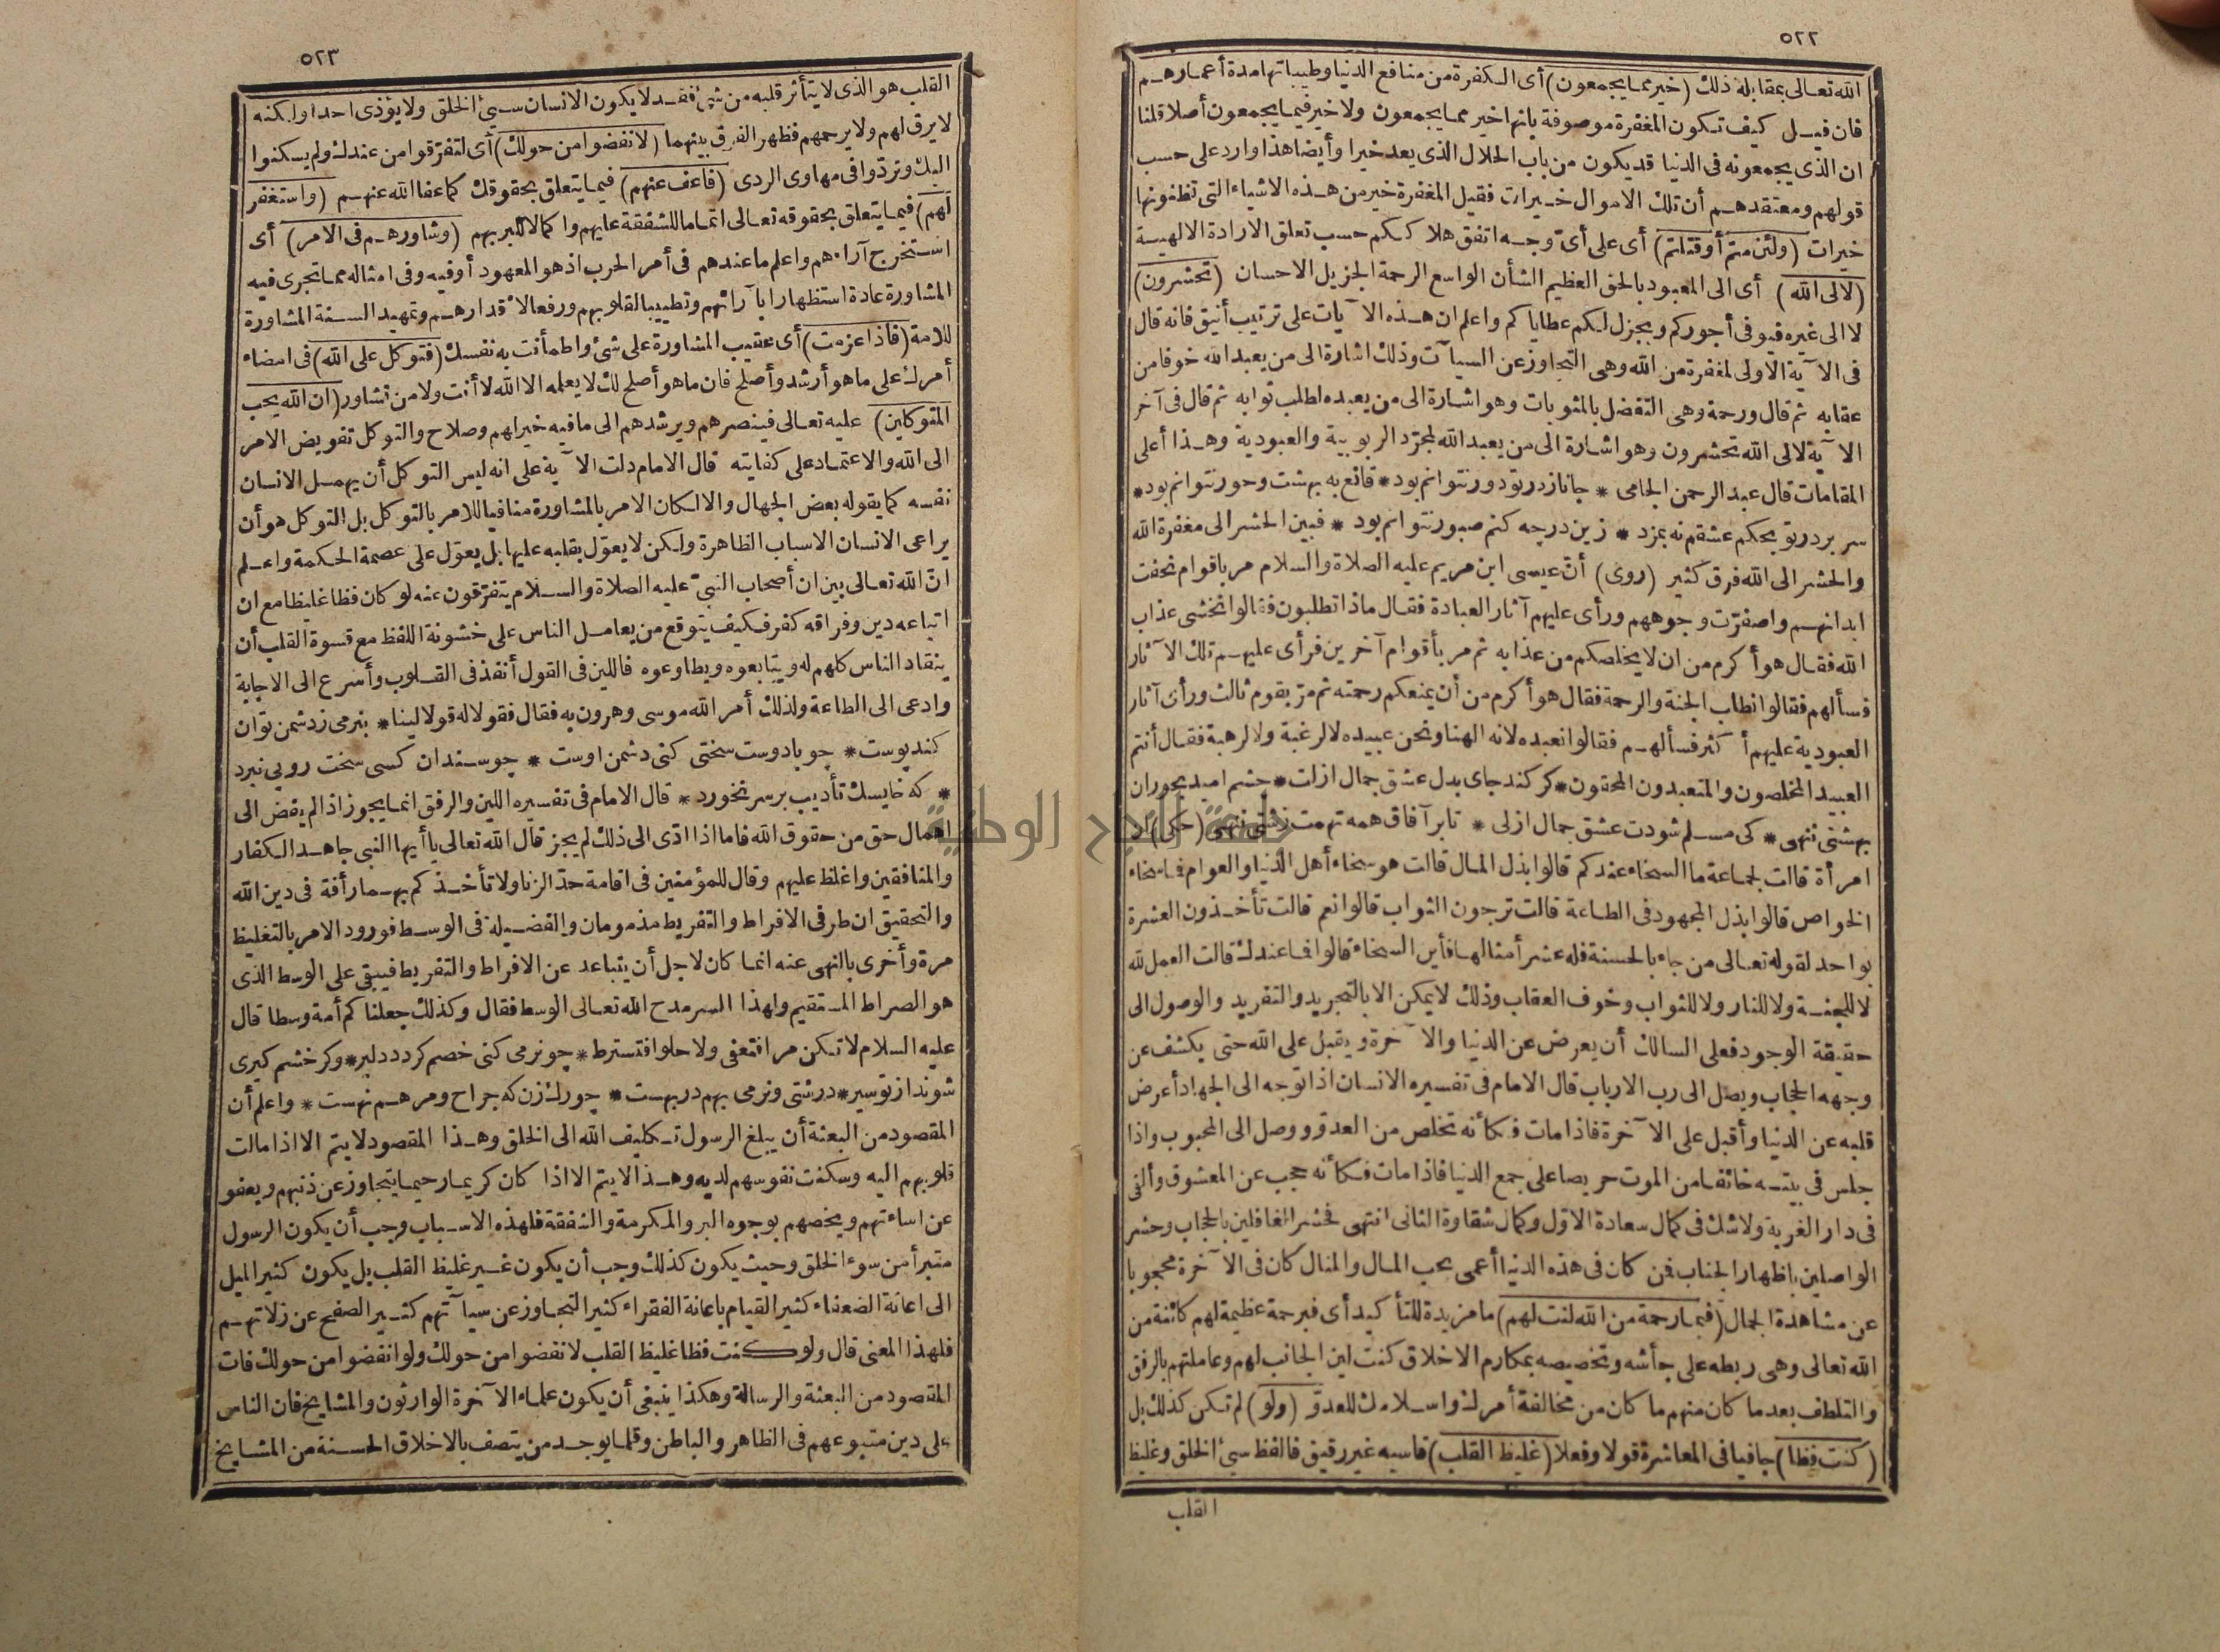 ٥٢٢
الله تعالى بمقابلة ذلك (خير مما يجمعون) أى الكفرة من منافع الدنيا وطيباتها مدة أعمارهم
فان قيل كيف تكون المغفرة موصوفة بانها خير مما يجمعون ولا خير فيما يجمعون أصلا قلنا
ان الذى يجمعونه فى الدنيا قد يكون من باب الحلال الذى يعد خيرا وأيضا هذا وارد على حسب
قولهم ومعتقدهم أن تلك الاموال خيرات فقيل المغفرة خير من هذه الاشياء التى تظنونها
خيرات (ولئن متم أو قتلتم) أى على أىّ وجه اتفق هلاككم حسب تعلق الارادة الالهية
(لالى الله) أى الى المعبود بالحق العظيم الشأن الواسع الرحمة الجزيل الاحسان (تحشرون)
لا الى غيره فيوفى أجوركم ويجزل لكم عطاياكم واعلم ان هذه الآيات على ترتيب أنيق فانه قال
فى الآية الاولى لمغفرة من الله وهى التجاوز عن السيآت وذلك اشارة الى من يعبد الله خوفا من
عقابه ثم قال ورحمة وهى التفضل بالمثوبات وهو اشارة الى من يعبده لطلب ثوابه ثم قال فى آخر
الآية لالى الله تحشرون وهو اشارة الى من يعبد الله لمجرّد الربوبية والعبودية وهذا أعلى
المقامات قال عبد الرحمن الجامى * جانا ز در تو دور نتوانم بود * قانع به بهشت وحور نتوانم بود *
سر بر در تو بحكم عشقم نه بمزد * زين در چه كنم صبور نتوانم بود * فبين الحشر الى مغفرة الله
والحشر الى الله فرق كثير (روى) أنّ عيسى ابن مريم عليه الصلاة والسلام مر باقوام نحفت
ابدانهم واصفرّت وجوههم ورأى عليهم آثار العبادة فقال ماذا تطلبون فقالوا نخشى عذاب
الله فقال هو أكرم من ان لا يخلصكم من عذابه ثم مر بأقوام آخرين فرأى عليهم تلك الآثار
فسألهم فقالوا نطلب الجنة والرحمة فقال هو أكرم من أن يمنعكم رحمته ثم مرّ بقوم ثالث ورأى آثار
العبودية عليهم أكثر فسألهم فقالوا نعبده لانه الهنا ونحن عبيده لا لرغبة ولا لرهبة فقال أنتم
العبيد المخلصون والمتعبدون المحقون * كر كند جاى بدل عشق جمال ازلت * چشم اميد بحوران
بهشتى ننهى * كى مسلم شودت عشق جمال ازلى * تا بر آفاق همه تهمت زشتى ننهى (حكى) ان
امرأة قالت لجماعة ما السخاء عندكم قالوا بذل المال قالت هو سخاء أهل الدنيا والعوام فما سخاء
الخواص قالوا بذل المجهود فى الطاعة قالت ترجون الثواب قالوا نعم قالت تأخذون العشرة
بواحد لقوله تعالى من جاء بالحسنة فله عشر أمثالها فأين السخاء قالوا فما عندك قالت العمل لله
لا للجنة ولا للنار ولا للثواب وخوف العقاب وذلك لا يمكن الا بالتجريد والتفريد والوصول الى
حقيقة الوجود فعلى السالك أن يعرض عن الدنيا والآخرة ويقبل على الله حتى يكشف عن
وجهه الحجاب ويصل الى رب الارباب قال الامام فى تفسيره الانسان اذا توجه الى الجهاد أعرض
قلبه عن الدنيا وأقبل على الآخرة فاذا مات فكأنه تخلص من العدوّ ووصل الى المحبوب واذا
جلس فى بيته خائفا من الموت حريصا على جمع الدنيا فاذا مات فكأنه حجب عن المعشوق وألقى
فى دار الغربة ولا شك فى كمال سعادة الاوّل وكمال شقاوة الثانى انتهى فحشر الغافلين بالحجاب وحشر
الواصلين باظهار الجناب فمن كان فى هذه الدنيا أعمى بحب المال والمنال كان فى الآخرة محجوبا
عن مشاهدة الجمال (فبما رحمة من الله لنت لهم) ما مزيدة للتأكيد أى فبرحمة عظيمة لهم كائنة من
الله تعالى وهى ربطه على جأشه وتخصيصه بمكارم الاخلاق كنت لين الجانب لهم وعاملتهم بالرفق
والتلطف بعد ما كان منهم ما كان من مخالفة أمرك واسلامك للعدوّ (ولو) لم تكن كذلك بل
(كنت فظا) جافيا فى المعاشرة قولا وفعلا (غليظ القلب) قاسيه غير رقيق فالفظ سيئ الخلق وغليظ
القلب
٥٢٣
القلب هو الذى لا يتأثر قلبه من شئ فقد لا يكون الانسان سيئ الخلق ولا يؤذى احدا ولكنه
لا يرق لهم ولا يرحمهم فظهر الفرق بينهما (لانفضوا من حولك) أى لتفرّقوا من عندك ولم يسكنوا
اليك وتردّوا فى مهاوى الردى (فاعف عنهم) فيما يتعلق بحقوقك كما عفا الله عنهم (واستغفر
لهم) فيما يتعلق بحقوقه تعالى اتماما للشفقة عليهم واكمالا للبر بهم (وشاورهم فى الامر) أى
استخرج آراءهم واعلم ما عندهم فى أمر الحرب اذ هو المعهود أو فيه وفى امثاله مما تجرى فيه
المشاورة عادة استظهارا بآرائهم وتطييبا لقلوبهم ورفعا لاقدارهم وتمهيد السنة المشاورة
للامة (فاذا عزمت) أى عقيب المشاورة على شئ واطمأنت به نفسك (فتوكل على الله) فى امضاء
أمرك على ما هو أرشد وأصلح فان ما هو أصلح لك لا يعلمه الا الله لا أنت ولا من تشاور (ان الله يحب
المتوكلين) عليه تعالى فينصرهم ويرشدهم الى ما فيه خير لهم وصلاح والتوكل تفويض الامر
الى الله والاعتماد على كفايته قال الامام دلت الآية على انه ليس التوكل أن يهمل الانسان
نفسه كما يقوله بعض الجهال والا لكان الامر بالمشاورة منافيا للامر بالتوكل بل التوكل هو أن
يراعى الانسان الاسباب الظاهرة ولكن لا يعوّل بقلبه عليها بل يعوّل على عصمة الحكمة واعلم
انّ الله تعالى بين ان أصحاب النبىّ عليه الصلاة والسلام يتفرّقون عنه لو كان فظا غليظا مع ان
اتباعه دين وفراقه كفر فكيف يتوقع من يعامل الناس على خشونة اللفظ مع قسوة القلب أن
ينقاد الناس كلهم له ويتابعوه ويطاوعوه فاللين فى القول أنفذ فى القلوب وأسرع الى الاجابة
وادعى الى الطاعة ولذلك أمر الله موسى وهرون به فقال فقولا له قولا لينا * بنرمى ز دشمن توان
كند پوست * چو با دوست سختى كنى دشمن اوست * چو سندان كسى سخت رويى نبرد
* كه خايسك تأديب بر سر نخورد * قال الامام فى تفسيره اللين والرفق انما يجوز اذا لم يفض الى
اهمال حق من حقوق الله فاما اذا ادّى الى ذلك لم يجز قال الله تعالى يا أيها النبى جاهد الكفار
والمنافقين واغلظ عليهم وقال للمؤمنين فى اقامة حدّ الزنا ولا تأخذكم بهما رأفة فى دين الله
والتحقيق ان طرفى الافراط والتفريط مذمومان والفضيلة فى الوسط فورود الامر بالتغليظ
مرة وأخرى بالنهى عنه انما كان لاجل أن يتباعد عن الافراط والتفريط فيبقى على الوسط الذى
هو الصراط المستقيم ولهذا السر مدح الله تعالى الوسط فقال وكذلك جعلناكم أمة وسطا قال
عليه السلام لا تكن مرا فتعفى ولا حلوا فتسترط * چو نرمى كنى خصم كردد دلير * وكر خشم كيرى
شوند از تو سير * درشتى ونرمى بهم در بهست * چو رك زن كه جراح ومرهم نهست * واعلم أن
المقصود من البعثة أن يبلغ الرسول تكليف الله الى الخلق وهذا المقصود لا يتم الا اذا مالت
قلوبهم اليه وسكنت نفوسهم لديه وهذا لا يتم الا اذا كان كريما رحيما يتجاوز عن ذنبهم ويعفو
عن اساءتهم ويخصهم بوجوه البر والمكرمة والشفقة فلهذه الاسباب وجب أن يكون الرسول
متبرأ من سوء الخلق وحيث يكون كذلك وجب أن يكون غير غليظ القلب بل يكون كثير الميل
الى اعانة الضعفاء كثير القيام باعانة الفقراء كثير التجاوز عن سيآتهم كثير الصفح عن زلاتهم
فلهذا المعنى قال ولو كنت فظا غليظ القلب لانفضوا من حولك ولو انفضوا من حولك فات
المقصود من البعثة والرسالة وهكذا ينبغى أن يكون علماء الآخرة الوارثون والمشايخ فان الناس
على دين متبوعهم فى الظاهر والباطن وقلما يوجد من يتصف بالاخلاق الحسنة من المشايخ